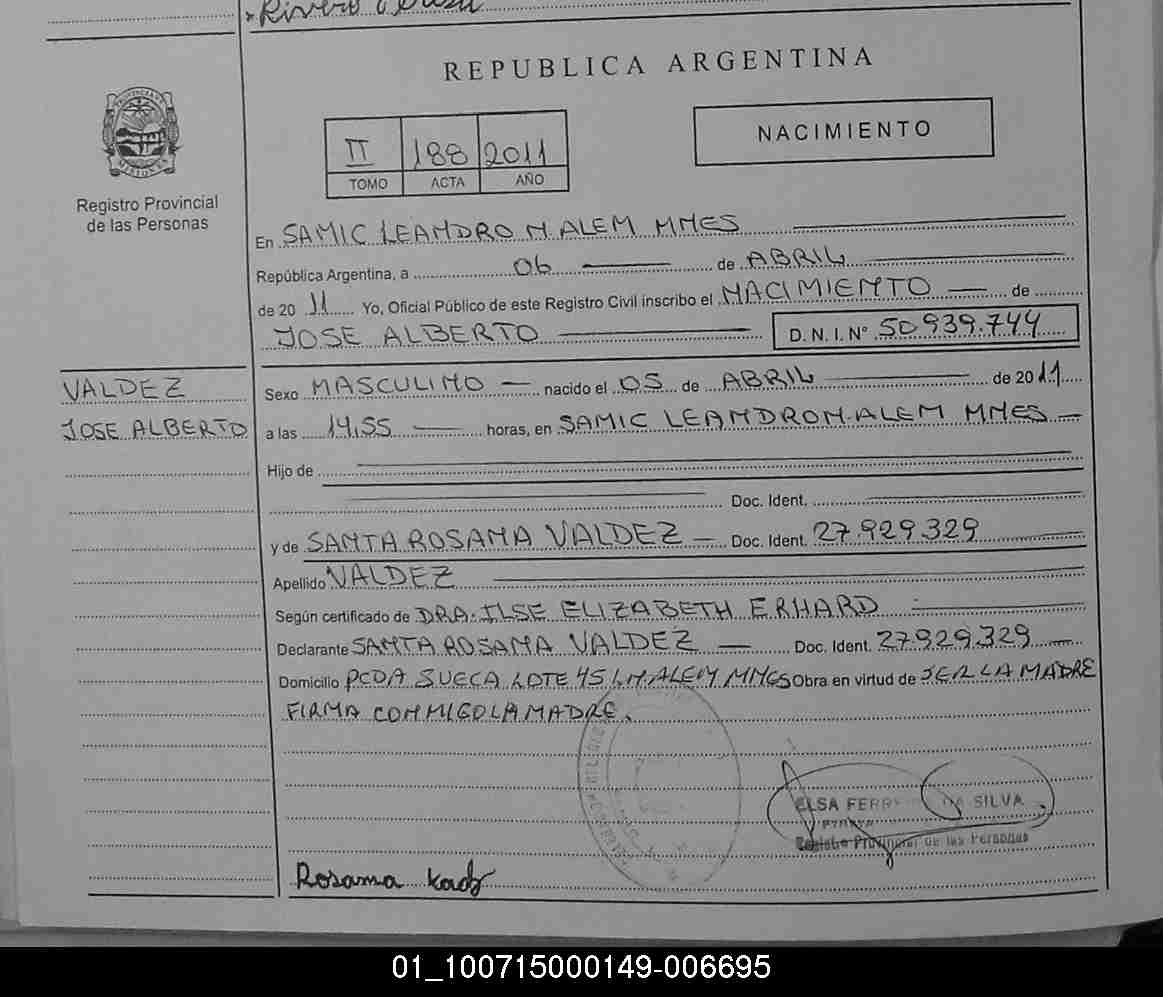 REPUBLICA ARGENTINA
PROVINCIA DE
MISIONES
Registro Provincial
de las Personas
II 188 2011
TOMO ACTA AÑO
NACIMIENTO
En SAMIC LEANDRO N. ALEM MNES
República Argentina, a 06 de ABRIL
de 2011 Yo, Oficial Público de este Registro Civil inscribo el NACIMIENTO de
JOSE ALBERTO D. N. I. Nº 50.939.744
VALDEZ
JOSE ALBERTO
Sexo MASCULINO nacido el 05 de ABRIL de 2011
a las 14,55 horas, en SAMIC LEANDRO N. ALEM MNES
Hijo de
Doc. Ident.
y de SANTA ROSANA VALDEZ Doc. Ident. 27.929.329
Apellido VALDEZ
Según certificado de DRA. ILSE ELIZABETH ERHARD
Declarante SANTA ROSANA VALDEZ Doc. Ident. 27.929.329
Domicilio PCDA SUECA LOTE 45 L.N. ALEM MNES Obra en virtud de SER LA MADRE
FIRMA CONMIGO LA MADRE.
ELSA DA SILVA
Registro Provincial de las Personas
Rosana
01_100715000149-006695